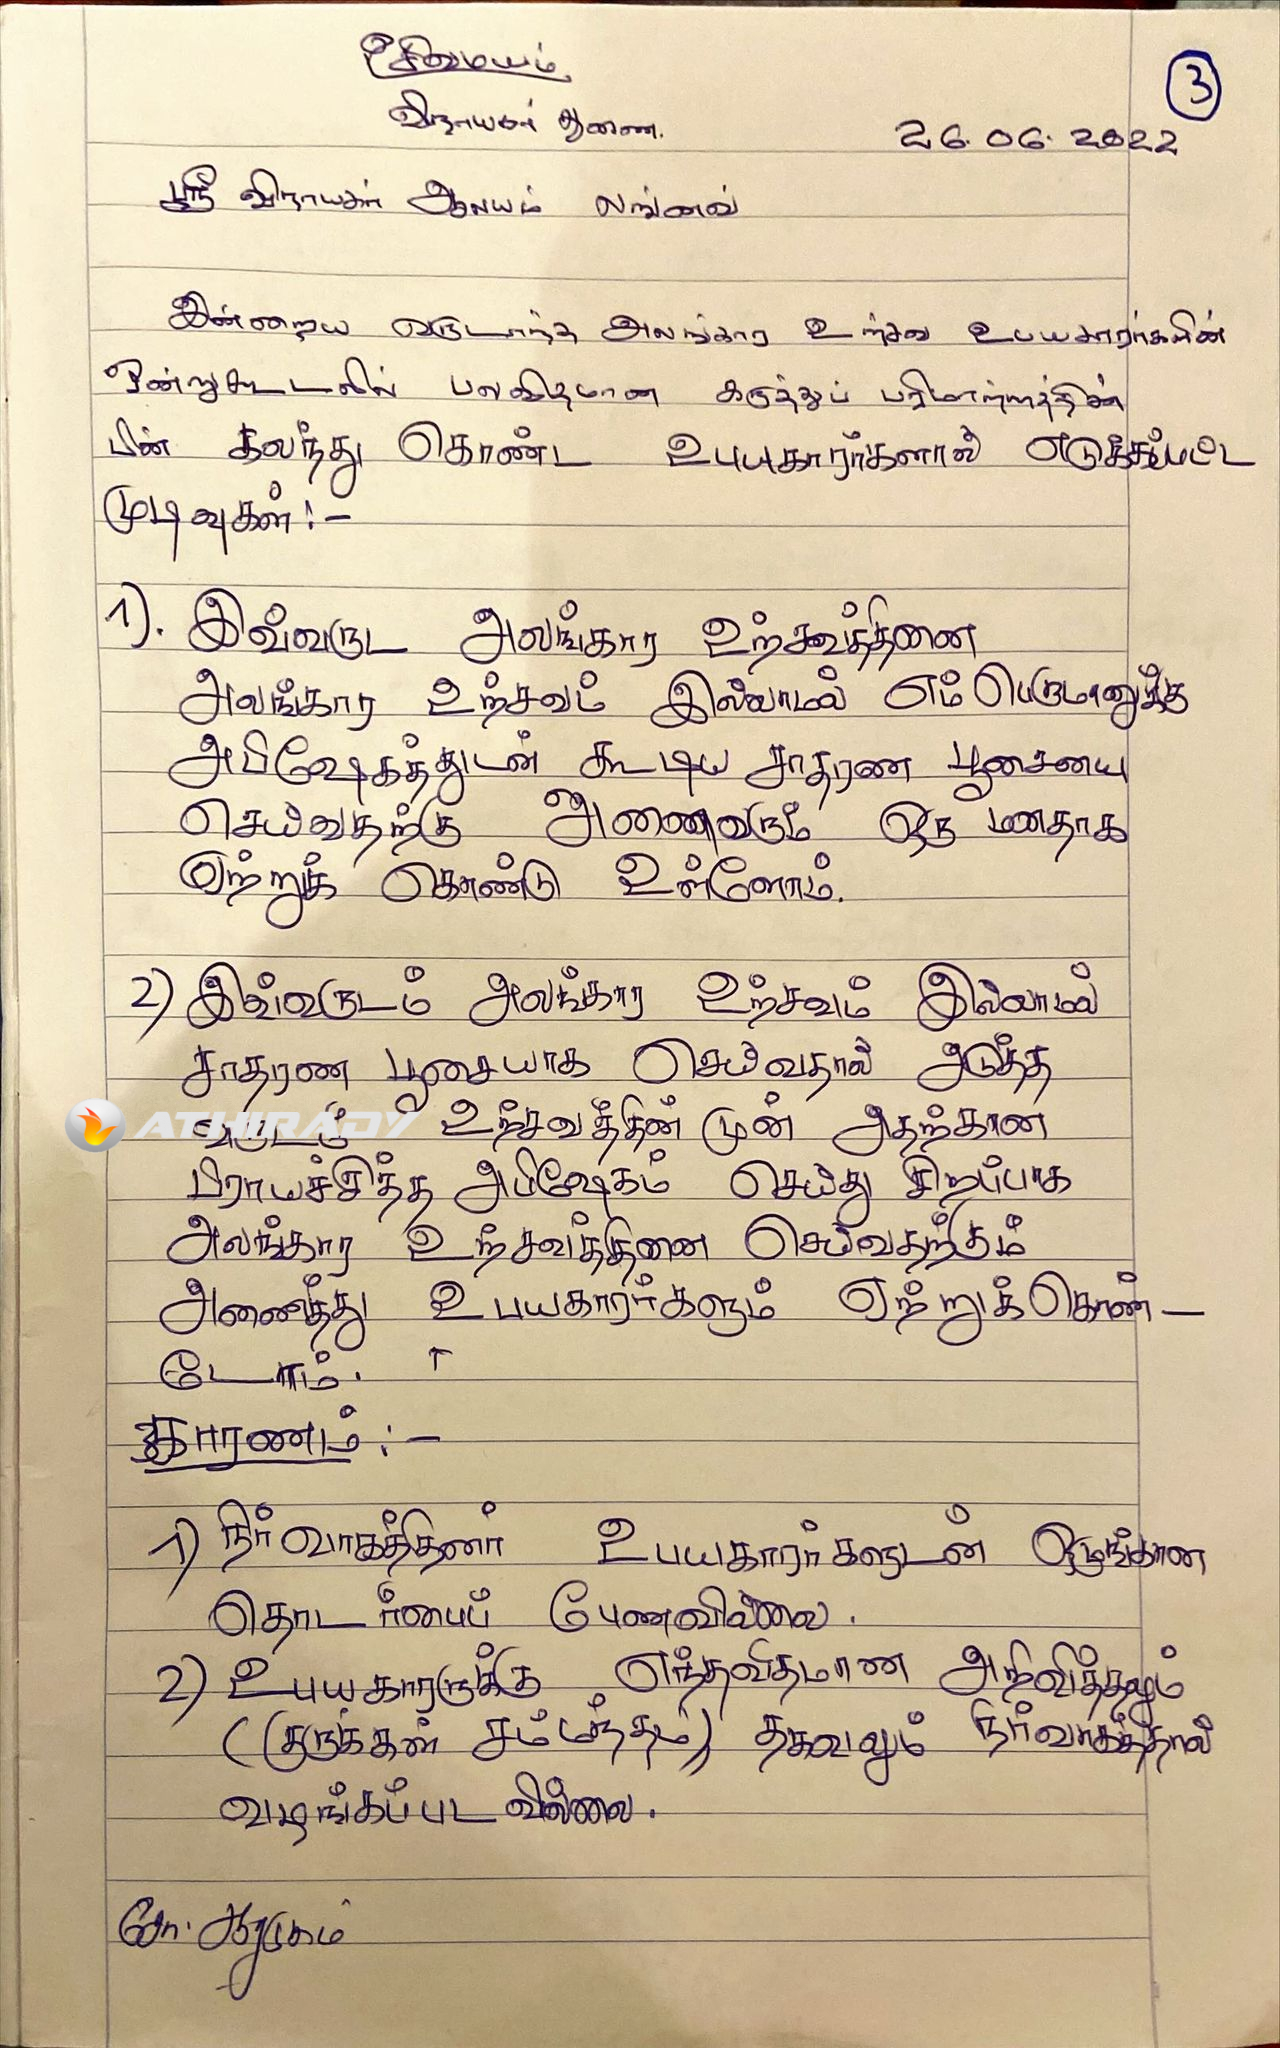 உ சிவமயம்
விநாயகர் துணை.
3
26.06.2022
ஸ்ரீ விநாயகர் ஆலயம் லங்னவ்
இன்றைய வருடாந்த அலங்கார உற்சவ உபயகாரர்களின்
ஒன்றுகூடலில் பலவிதமான கருத்துப் பரிமாற்றத்தின்
பின் கலந்து கொண்ட உபயகாரர்களால் எடுக்கப்பட்ட
முடிவுகள்:-
1). இவ்வருட அலங்கார உற்சவத்தினை
அலங்கார உற்சவம் இல்லாமல் எம்பெருமானுக்கு
அபிஷேகத்துடன் கூடிய சாதரண பூசையை
செய்வதற்கு அணைவரும் ஒரு மனதாக
ஏற்றுக் கொண்டு உள்ளோம்.
2) இவ்வருடம் அலங்கார உற்சவம் இல்லாமல்
சாதரண பூசையாக செய்வதால் அடுத்த
ATHIRADY
வருடம் உற்சவத்தின் முன் அதற்கான
பிராயச்சித்த அபிஷேகம் செய்து சிறப்பாக
அலங்கார உற்சவத்தினை செய்வதற்கும்
அணைத்து உபயகாரர்களும் ஏற்றுக்கொண்-
டோம்.
காரணம்:-
1) நிர்வாகத்தினர் உபயகாரர்களுடன் ஒழுங்கான
தொடர்பைப் பேணவில்லை.
2) உபயகாரருக்கு எந்தவிதமான அறிவித்தலும்
(குருக்கள் சம்மந்தம்) தகவலும் நிர்வாகத்தால்
வழங்கப்பட வில்லை.